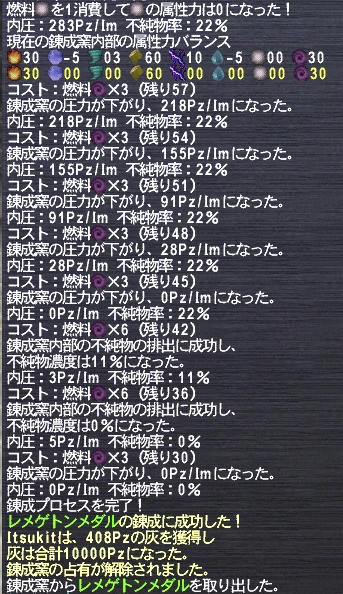 燃料を1消費しての属性力は0になった！
内圧：283Pz/Im 不純物率：22%
現在の錬成窯内部の属性力バランス
30 -5 03 60 10 -5 00 30
30 00 00 60 00 00 00 30
コスト：燃料×3 (残り57)
錬成窯の圧力が下がり、218Pz/Imになった。
内圧：218Pz/Im 不純物率：22%
コスト：燃料×3 (残り54)
錬成窯の圧力が下がり、155Pz/Imになった。
内圧：155Pz/Im 不純物率：22%
コスト：燃料×3 (残り51)
錬成窯の圧力が下がり、91Pz/Imになった。
内圧：91Pz/Im 不純物率：22%
コスト：燃料×3 (残り48)
錬成窯の圧力が下がり、28Pz/Imになった。
内圧：28Pz/Im 不純物率：22%
コスト：燃料×3 (残り45)
錬成窯の圧力が下がり、0Pz/Imになった。
内圧：0Pz/Im 不純物率：22%
コスト：燃料×6 (残り42)
錬成窯内部の不純物の排出に成功し、
不純物濃度は11%になった。
内圧：3Pz/Im 不純物率：11%
コスト：燃料×6 (残り36)
錬成窯内部の不純物の排出に成功し、
不純物濃度は0%になった。
内圧：5Pz/Im 不純物率：0%
コスト：燃料×3 (残り30)
錬成窯の圧力が下がり、0Pz/Imになった。
内圧：0Pz/Im 不純物率：0%
錬成プロセスを完了！
レメゲトンメダルの錬成に成功した！
Itsukitは、408Pzの灰を獲得し
灰は合計10000Pzになった。
錬成窯の占有が解除されました。
錬成窯からレメゲトンメダルを取り出した。